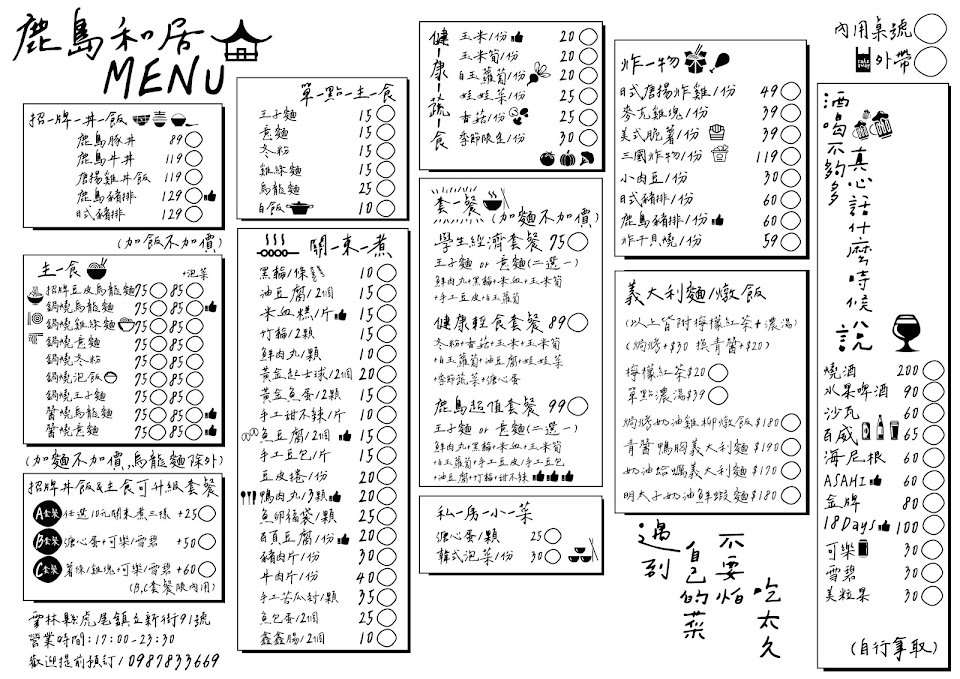 鹿島和居
MENU
招-牌-丼-飯
鹿島豚丼 89
鹿島牛丼 119
唐揚雞丼飯 119
鹿島豬排 129
日式豬排 129
(加飯不加價)
主-食
+泡菜
招牌豆皮烏龍麵 75 85
鍋燒烏龍麵 75 85
鍋燒雞絲麵 75 85
鍋燒意麵 75 85
鍋燒冬粉 75 85
鍋燒泡飯 75 85
鍋燒王子麵 75 85
醬燒烏龍麵 75 85
醬燒意麵 75 85
(加麵不加價,烏龍麵除外)
招牌丼飯&主食可升級套餐
A套餐 任選10元關東煮三樣 +25
B套餐 溏心蛋+可樂/雪碧 +50
C套餐 薯條/雞塊+可樂/雪碧 +60
(B,C套餐限內用)
雲林縣虎尾鎮立新街91號
營業時間:17:00-23:30
歡迎提前預訂/0987833669
單-點-主-食
王子麵 15
意麵 15
冬粉 15
雞絲麵 15
烏龍麵 25
白飯 10
關-東-煮
黑輪/條 10
油豆腐/2個 15
米血糕/片 15
竹輪/2顆 15
鮮肉丸/顆 10
黃金起士球/2個 20
黃金魚蛋/2顆 15
手工甜不辣/片 10
魚豆腐/2個 15
手工豆包/片 15
豆皮捲/份 20
鴨肉丸/3顆 20
魚卵福袋/顆 20
百頁豆腐/份 20
豬肉片/份 30
牛肉片/份 40
手工苦瓜封/顆 35
魚包蛋/2個 25
鑫鑫腸/2個 10
健-康-蔬-食
玉米/份 20
玉米筍/份 20
白玉蘿蔔/份 20
娃娃菜/份 25
香菇/份 25
季節限定/份 30
套-餐
(加麵不加價)
學生經濟套餐 75
王子麵 or 意麵(二選一)
鮮肉丸+黑輪+米血+玉米
+手工豆皮+白玉蘿蔔
健康輕食套餐 89
冬粉+香菇+玉米+玉米筍
+白玉蘿蔔+油豆腐+娃娃菜
+季節蔬菜+溏心蛋
鹿島超值套餐 99
王子麵 or 意麵(二選一)
鮮肉丸+黑輪+米血+玉米筍
+白玉蘿蔔+手工豆皮/手工豆包
+油豆腐+竹輪+甜不辣
私-房-小-菜
溏心蛋 25
韓式泡菜/份 30
炸-物
日式唐揚炸雞/份 49
麥克雞塊/份 39
美式脆薯/份 39
三國炸物/份 119
小肉豆/份 30
日式豬排/份 60
鹿島豬排/份 60
炸干貝燒/份 59
義大利麵/燉飯
(以上皆附檸檬紅茶+濃湯)
(焗烤+$30 換青醬+$20)
檸檬紅茶$20
單點濃湯$39
焗烤奶油雞柳燉飯$180
青醬鴨胸義大利麵$190
奶油蛤蠣義大利麵$170
明太子奶油鮮蝦麵$180
遇到
自己的菜
不要怕
吃太久
內用桌號
外帶
酒喝不夠多
真心話什麼時候
說
燒酒 200
水果啤酒 90
沙瓦 60
百威 65
海尼根 60
ASAHI 60
金牌 80
18Days 100
可樂 30
雪碧 30
美粒果 30
(自行拿取)